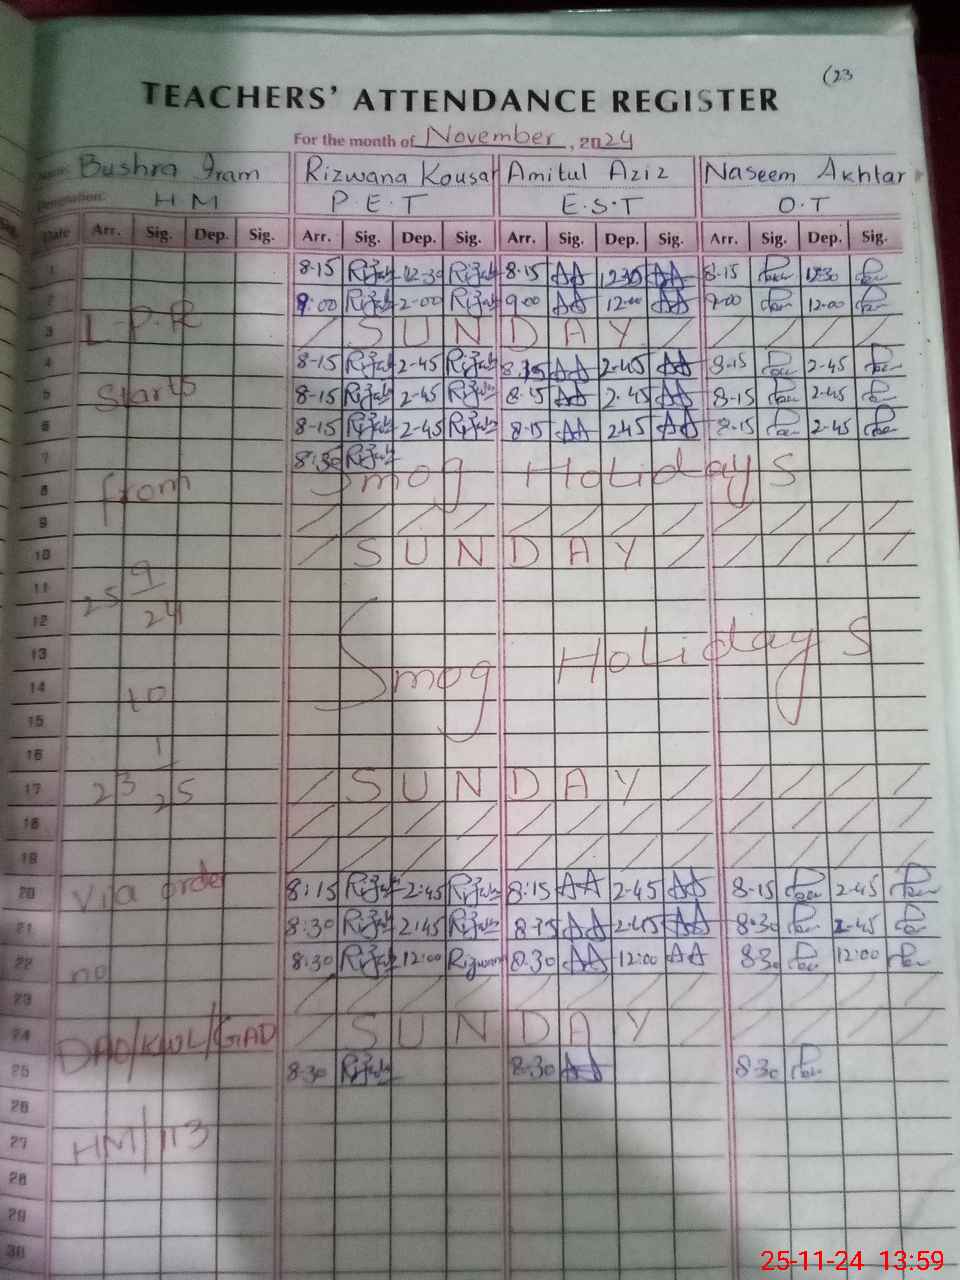 (23
TEACHERS' ATTENDANCE REGISTER
For the month of November, 2024
Name: Bushra Iram Rizwana Kousar Amitul Aziz Naseem Akhtar
Designation: H M P.E.T E.S.T O.T
Date Arr. Sig. Dep. Sig. Arr. Sig. Dep. Sig. Arr. Sig. Dep. Sig. Arr. Sig. Dep. Sig.
1 8-15 12-30 8-15 AA 1230 AA 8-15 1230
2 9:00 2-00 9-00 AA 12-00 AA 9-00 12-00
3 L-P-R SUNDAY
4 8-15 2-45 8.15 AA 2-45 AA 8-15 2-45
5 Starts 8-15 2-45 8-15 AA 2.45 AA 8-15 2-45
6 8-15 2-45 8-15 AA 245 AA 8-15 2-45
7 8:30
8 from Smog Holidays
9
10 SUNDAY
11 25 9
12 24
13 Smog Holidays
14 10
15
16 1
17 23 25 SUNDAY
18
19
20 Via order 8:15 2:45 8:15 AA 2-45 AA 8-15 2-45
21 8:30 2:45 AA 2-45 AA 8-30 2-45
22 no 8:30 12:00 8.30 AA 12:00 AA 830 12:00
23
24 DAO/KWL/GAD SUNDAY
25 8-30 8-30 AA 830
26
27 HM/113
28
29
30
25-11-24 13:59